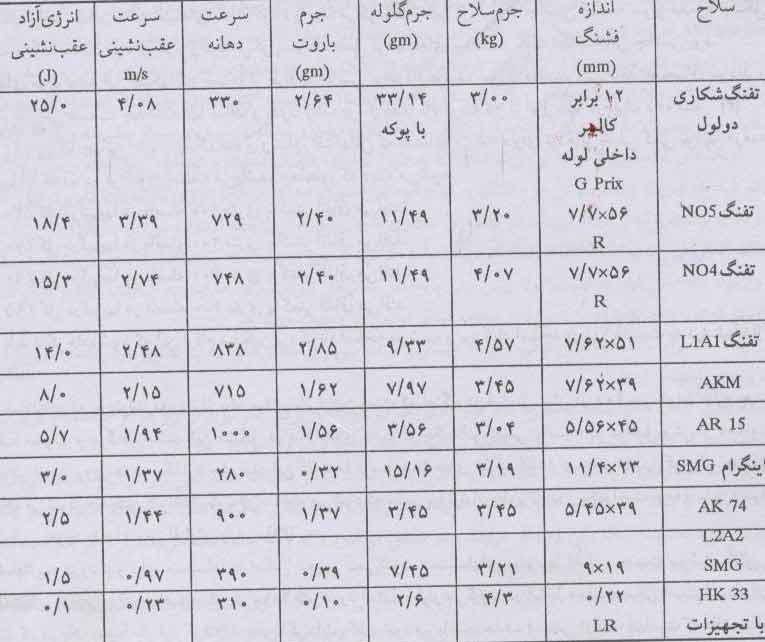 سلاح	اندازه فشنگ (mm)	جرم‌سلاح (kg)	جرم‌گلوله (gm)	جرم باروت (gm)	سرعت دهانه	سرعت عقب‌نشینی m/s	انرژی‌آزاد عقب‌نشینی (J)
تفنگ‌شکاری دولول	۱۲ برابر کالیبر داخلی لوله G Prix	۳/۰۰	۳۳/۱۴ با پوکه	۲/۶۴	۳۳۰	۴/۰۸	۲۵/۰
تفنگ NO5	۷/۷×۵۶ R	۳/۲۰	۱۱/۴۹	۲/۴۰	۷۲۹	۳/۳۹	۱۸/۴
تفنگ NO4	۷/۷×۵۶ R	۴/۰۷	۱۱/۴۹	۲/۴۰	۷۴۸	۲/۷۴	۱۵/۳
تفنگ L1A1	۷/۶۲×۵۱	۴/۵۷	۹/۳۳	۲/۸۵	۸۳۸	۲/۴۸	۱۴/۰
AKM	۷/۶۲×۳۹	۳/۴۵	۷/۹۷	۱/۶۲	۷۱۵	۲/۱۵	۸/۰
AR 15	۵/۵۶×۴۵	۳/۰۴	۳/۵۶	۱/۵۶	۱۰۰۰	۱/۹۴	۵/۷
اینگرام SMG	۱۱/۴×۲۳	۳/۱۹	۱۵/۱۶	۰/۳۲	۲۸۰	۱/۳۷	۳/۰
AK 74	۵/۴۵×۳۹	۳/۴۵	۳/۴۵	۱/۳۷	۹۰۰	۱/۴۴	۲/۵
L2A2 SMG	۹×۱۹	۳/۲۱	۷/۴۵	۰/۳۹	۳۹۰	۰/۹۷	۱/۵
HK 33 با تجهیزات	۰/۲۲ LR	۴/۳	۲/۶	۰/۱۰	۳۱۰	۰/۲۳	۰/۱